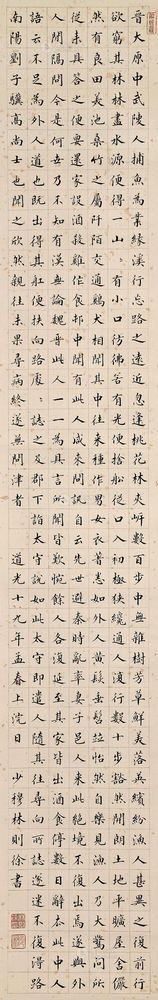 晉太原中武陵人捕魚為業緣溪行忘路之遠近忽逢桃花林夾岍數百步中無雜樹芳草鮮美落英繽紛漁人甚異之復前行
欲窮其林林盡水源便得一山山有小口彷彿若有光便捨船從口入初極狹纔通人復行數十步豁然開朗土地平曠屋舍儼
然有良田美池桑竹之屬阡陌交通雞犬相聞其中往來種作男女衣著悉如外人黃髮垂髫並怡然自樂見漁人乃大驚問所
從來具答之便要還家設酒殺雞作食邨中聞有此人咸來問訊自云先世避秦時亂率妻子邑人來此絕境不復出焉遂與外
人間隔問今是何世乃不知有漢無論魏晉此人一一為具言所聞皆歎惋餘人各復延至其家皆出酒食停數日辭去此中人
語云不足為外人道也既出得其船便扶向路處處誌之及郡下詣太守說如此太守即遣人隨其往尋向所誌遂迷不復得路
南陽劉子驥高尚士也聞之欣然親往未果尋病終遂無問津者 道光十九年孟春上浣日 少穆林則徐書